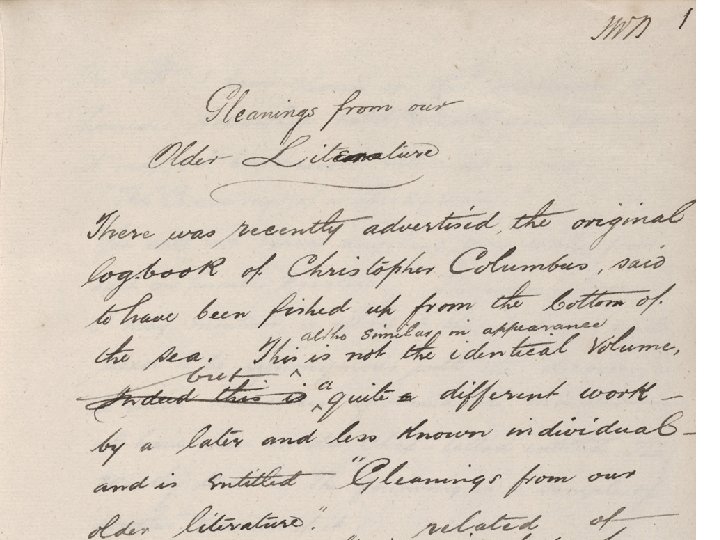 1
Gleanings from our
Older Literature
There was recently advertised, the original
logbook of Christopher Columbus, said
to have been fished up from the bottom of
altho similar in appearance
the sea. This is not the identical volume,
but a
Indeed this is quite a different work –
by a later and less known individual –
and is entitled "Gleanings from our
older literature".
related of